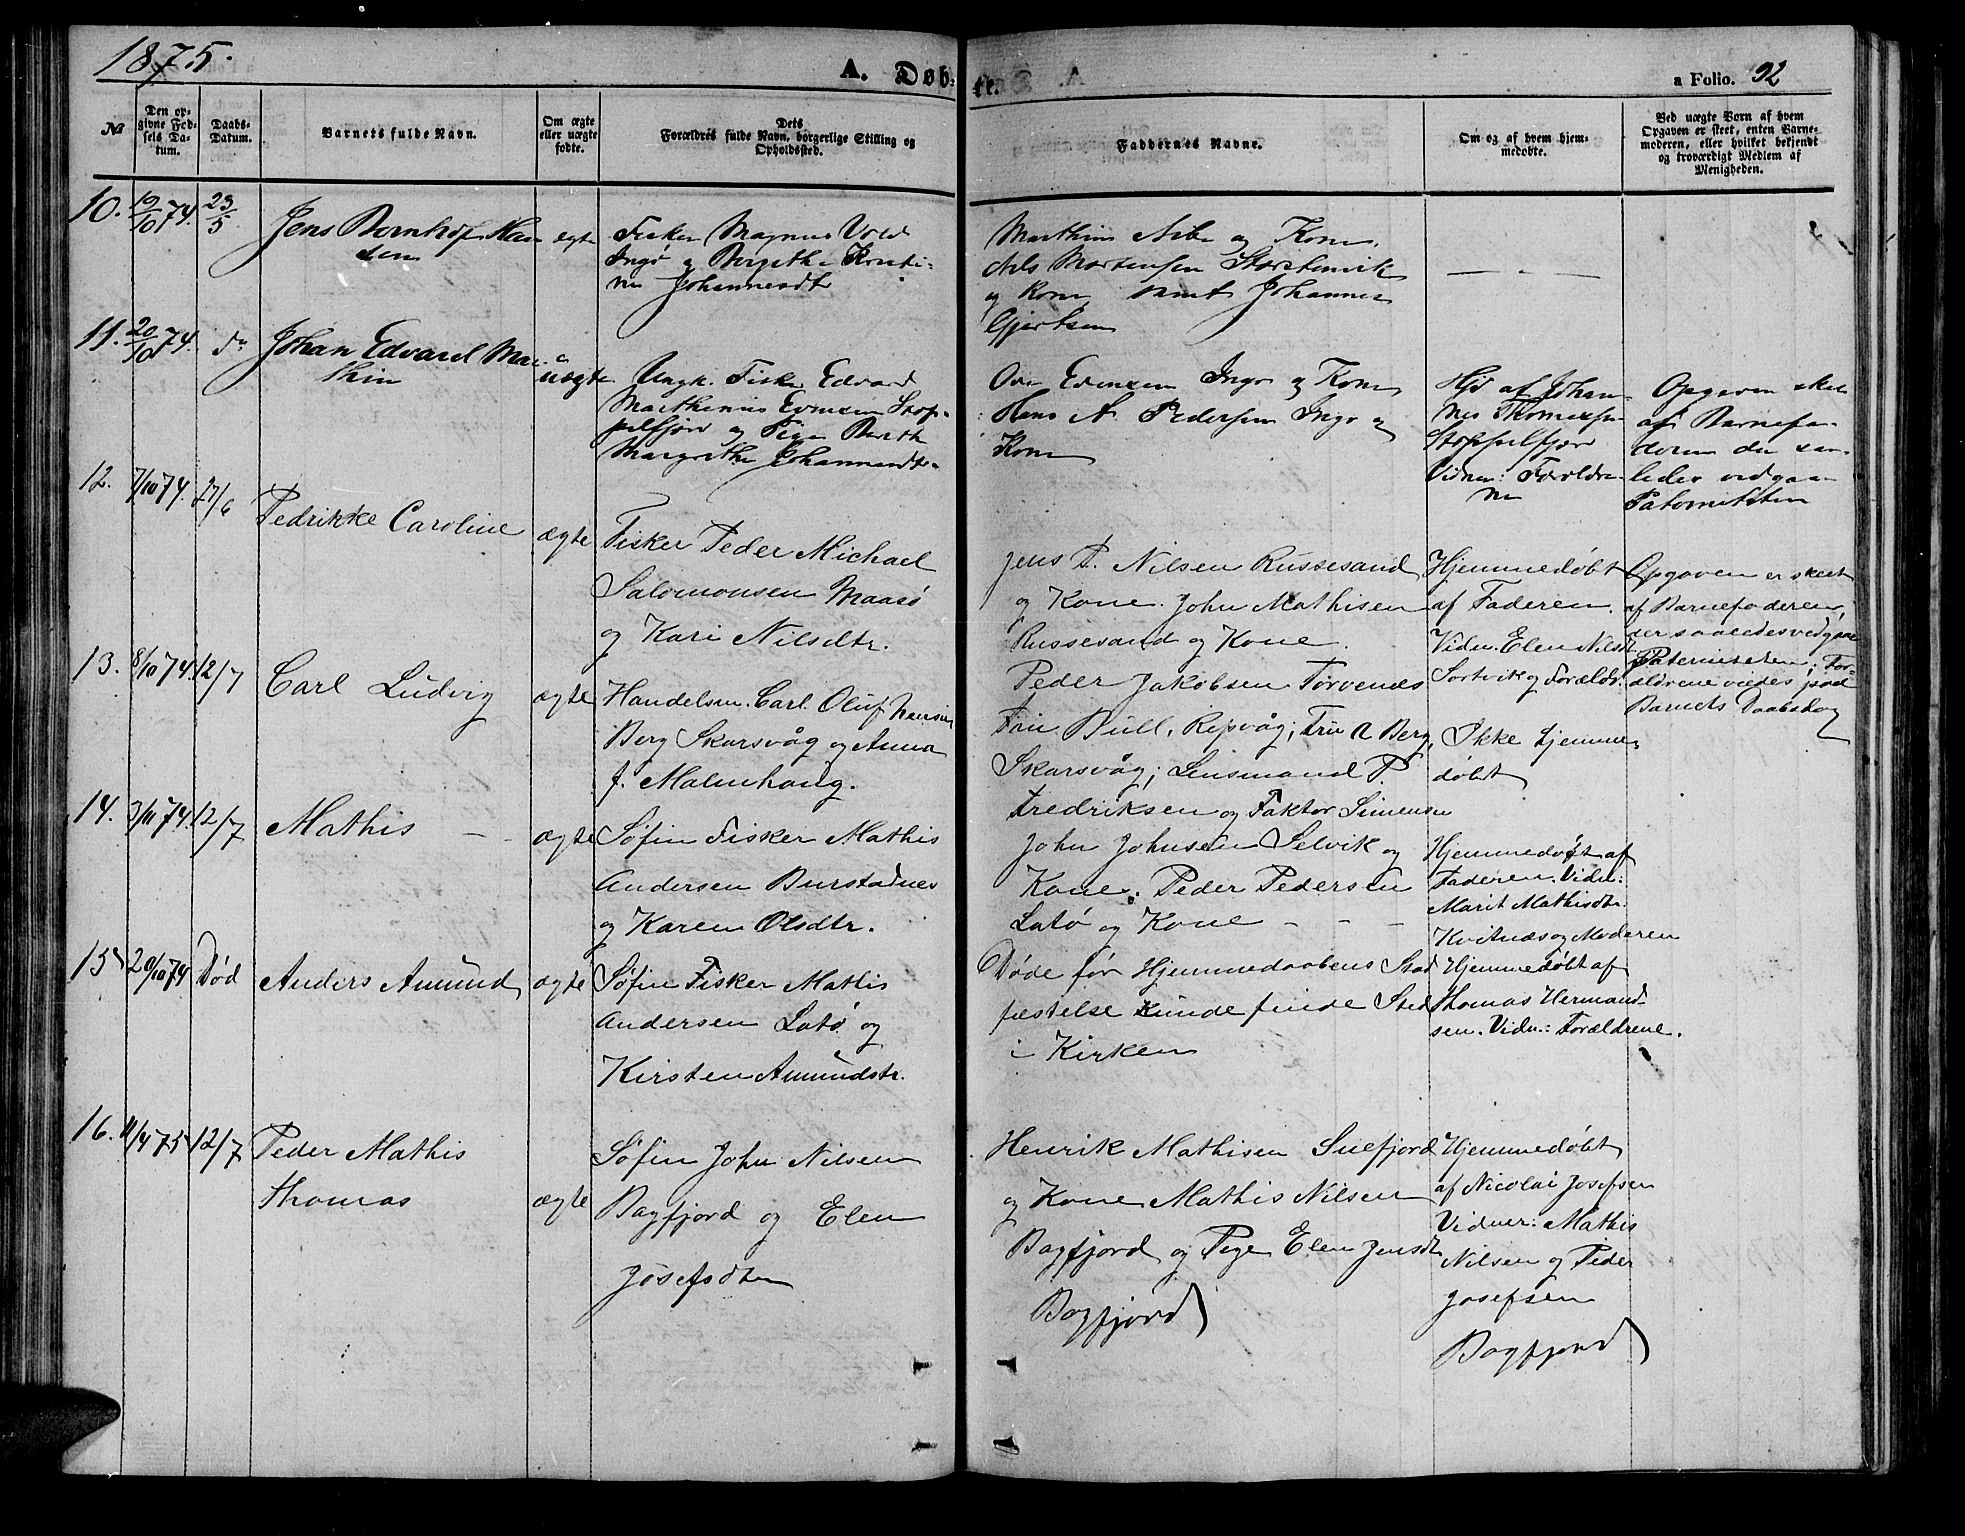 1875.
A. Døb-
te.
a Folio. 92
№
Den op-
givne Fød-
sels Da-
tum.
Daabs-
Datum.
Barnets fulde Navn.
Om ægte
eller uægte
fødte.
Dets
Forældres fulde Navn, borgerlige Stilling og
Opholdssted.
Faddernes Navne.
Om og af hvem hjem-
medøbte.
Ved uægte Børn af hvem
Opgaven er skeet, enten Barne-
moderen, eller hvilket bekjendt
og troværdigt Medlem af
Menigheden.
10. 19/10 74. 23/5
Jens Bernhof Han
sen
egte
Fisker Magnus Vold
Ingø og Bergithe Kristi-
ne Johannesdtr
og Kone.
Nils Mortensen
og Kone samt Johannes
Gjertsen
11. 20/10 74. do
Johan Edvard Ma-
thin
uægte
Ungk. Fisker Edvard
Marthinius Evensen Stop-
pelfjord og Pige Berith
Margrethe Johannesdtr.
Ole Evensen Ingø og Kone
Hans A. Pedersen Ingø og
Kone
Hjd af Johan-
nes Thomassen
Stoppelfjord
Vidner: Forældre-
ne
Opgaven skeet
af Barnefa-
deren der saa-
ledes vedgaar
Paterniteten
12. 7/10 74. 27/6
Pedrikke Caroline
ægte
Fisker Peder Michael
Salomonsen Maasø
og Kari Nilsdtr.
Jens P. Nilsen Russesand
og Kone. John Mathisen
Russesand og Kone.
Peder Jakobsen Torvenæs
Hjemmedøbt
af Faderen.
Vidn. Elen Nilsdt
Sortvik og Forældr.
Opgaven er skeet
af Barnefaderen,
der saaledes vedgaar
Paterniteten; For-
ældrene viedes paa
Barnets Daabsdag
13. 8/10 74. 12/7
Carl Ludvig
ægte
Handelsm. Carl Oluf Hansen
Berg Skarsvåg og Anna
f. Malmhaug.
Fru Bull, Repvåg; Fru A Berg,
Skarsvåg; Lensmand P.
Fredriksen og Faktor Simensen
Ikke hjemme-
døbt
14. 3/11 74. 12/7
Mathis –
ægte
Søfin Fisker Mathis
Andersen Burstadnes
og Karen Olsdtr.
John Johnsen Selvik og
Kone. Peder Pedersen
Latø og Kone – – –
Hjemmedøbt af
Faderen. Vidn:
Marit Mathisdtr.
Kvitnæs og Moderen
15 20/10 74 Død
Anders Amund
ægte
Søfin Fisker Mathis
Andersen Latø og
Kirsten Amundstr.
Døde før Hjemmedaabens Stad
fæstelse kunde finde Sted
i Kirken
Hjemmedøbt af
Thomas Hermand-
sen. Vidn.: Forældrene.
16. 11/4 75 12/7
Peder Mathis
Thomas
ægte
Søfin John Nilsen
Bagfjord og Elen
Josefsdtr
Henrik Mathisen Snefjord
og Kone Mathis Nilsen
Bagfjord og Pige Elen Jensdt
Bagfjord
Hjemmedøbt
af Nicolai Josefsen
Vidner: Mathis
Nilsen og Peder
Josefsen
Bagfjord